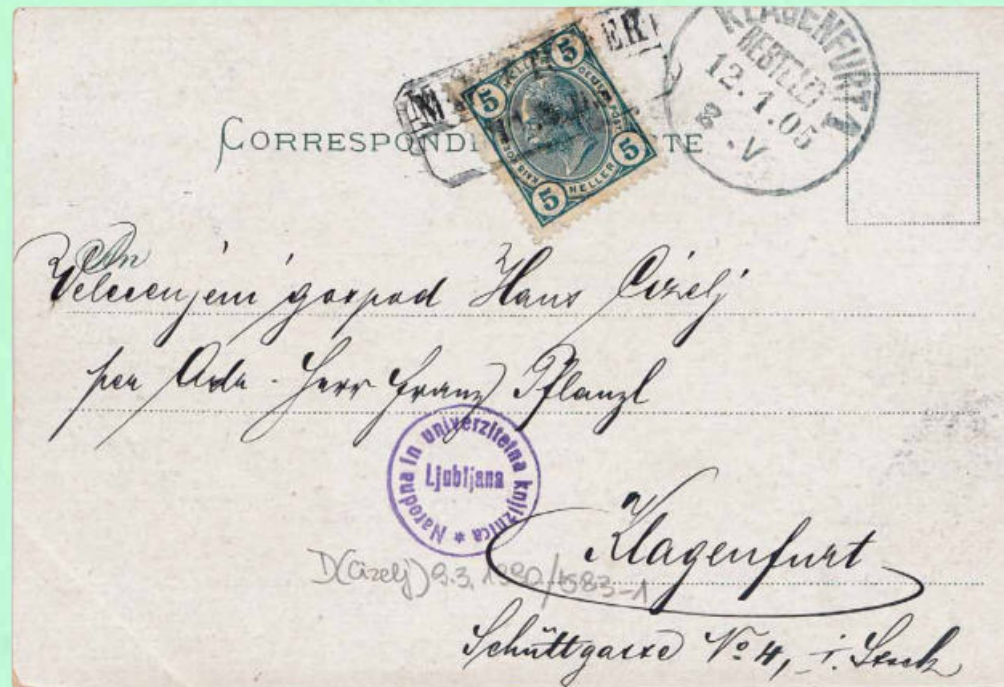 KLAGENFURT 1
BESTELLT
12.1.05
8.V
CORRESPONDENZ-KARTE
5 HELLER 5
5 HELLER 5
An
Velecenjeni gospod Hans Cizelj
per Adr. Herr Franz Pflanzl
Narodna in univerzitetna knjižnica *
Ljubljana
Klagenfurt
D(Cizelj) 9.3.1990/1583-1
Schüttgasse No 4, i. Stock